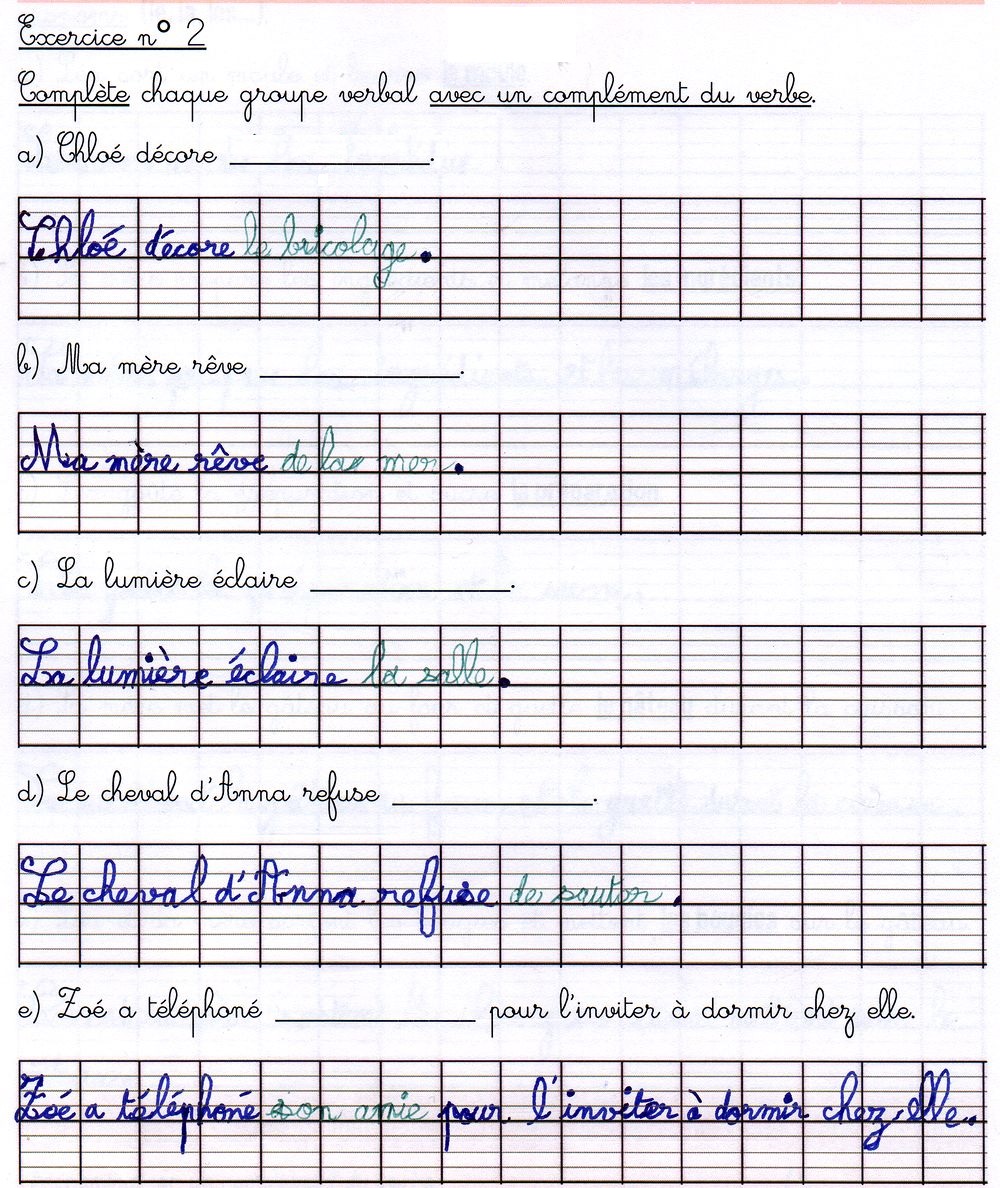 Exercice n° 2
Complète chaque groupe verbal avec un complément du verbe.
a) Chloé décore ____________.
Chloé décore le bricolage.
b) Ma mère rêve ____________.
Ma mère rêve de la mer.
c) La lumière éclaire ____________.
La lumière éclaire la salle.
d) Le cheval d'Anna refuse ____________.
Le cheval d'Anna refuse de sauter.
e) Zoé a téléphoné ____________ pour l'inviter à dormir chez elle.
Zoé a téléphoné son amie pour l'inviter à dormir chez elle.